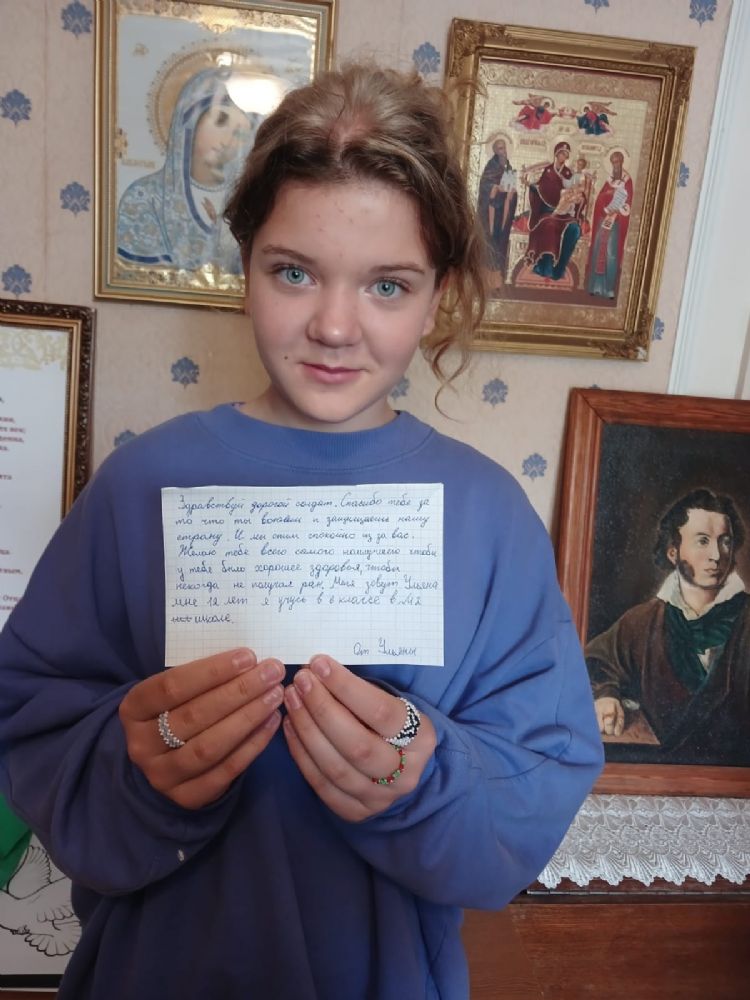 Здравствуй дорогой солдат. Спасибо тебе за
то что ты воюешь и защищаешь нашу
страну. И мы спим спокойно из за вас.
Желаю тебе всего самого наилучшего чтобы
у тебя было хорошее здоровья, чтобы
некогда не получал ран. Меня зовут Ульяна
мне 12 лет я учусь в 6 классе в МЯ
школе.
От Ульяны